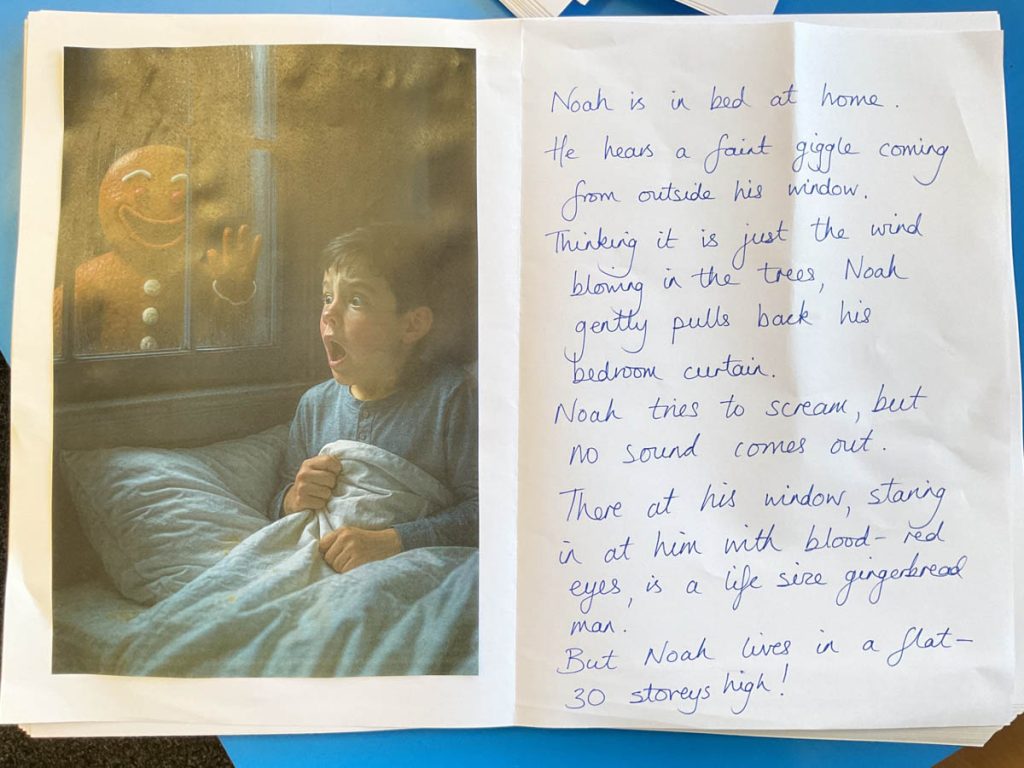 Noah is in bed at home.
He hears a faint giggle coming
from outside his window.
Thinking it is just the wind
blowing in the trees, Noah
gently pulls back his
bedroom curtain.
Noah tries to scream, but
no sound comes out.
There at his window, staring
in at him with blood-red
eyes, is a life size gingerbread
man.
But Noah lives in a flat-
30 storeys high!